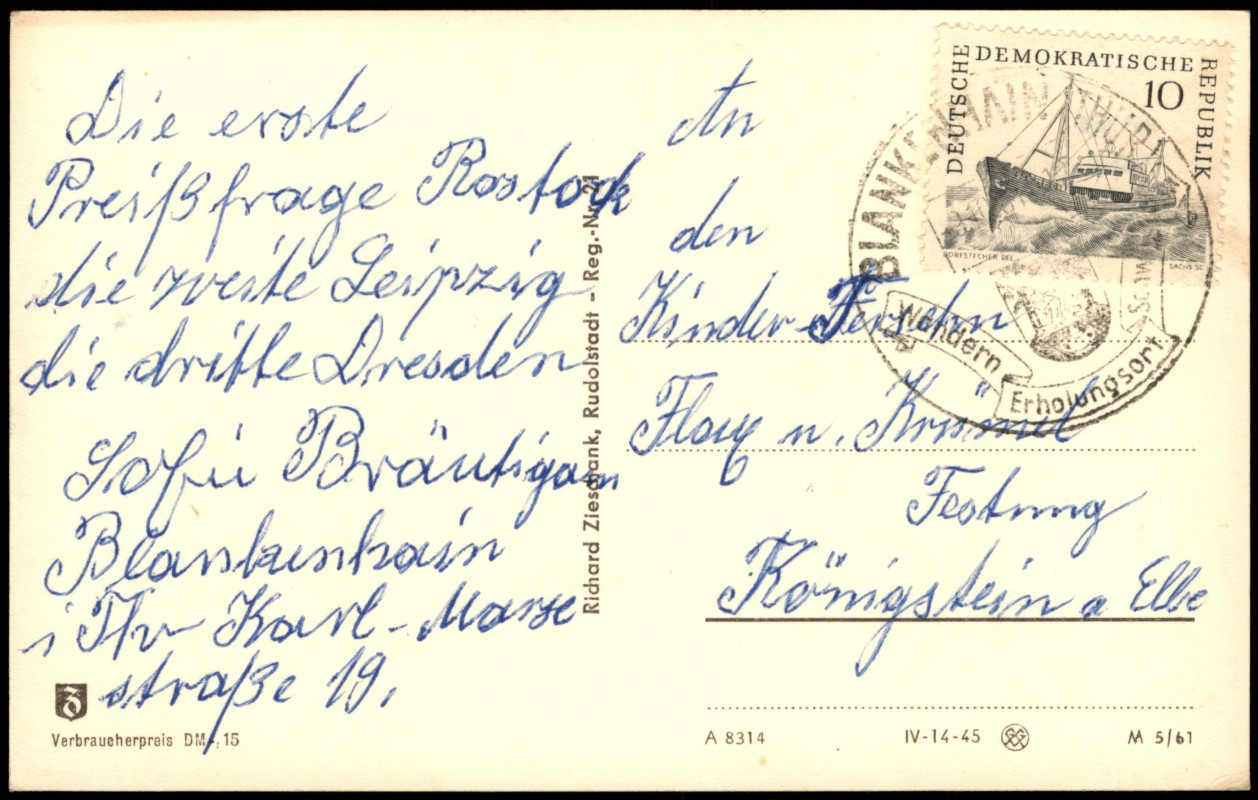 Die erste
Preißfrage Rostock
die zweite Leipzig
die dritte Dresden
Sofie Bräutigam
Blankenhain
i Thr Karl-Marxe
straße 19.
Verbraucherpreis DM -,15
Richard Zieschank, Rudolstadt - Reg.-Nr. 21
DEUTSCHE DEMOKRATISCHE REPUBLIK
10
DORFSTECHER DEL.
SACHS SC.
BLANKENHAIN THÜR
Wandern
Erholungsort
An
den
Kinder-Fersehn
Flax u. Krümel
Festung
Königstein a Elbe
A 8314
IV-14-45
M 5/61